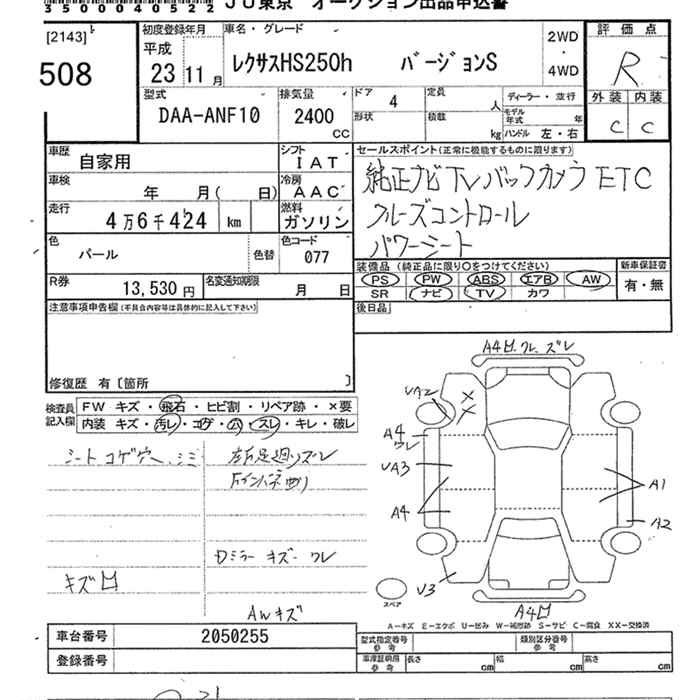 35000405 2 JU東京 オークション出品申込書
[2143]
508
初度登録年月
平成
23 11月
車名・グレード
レクサスHS250h バージョンS
2WD
・
4WD
評価点
R
外装 内装
C C
型式
DAA-ANF10
排気量
2400
CC
ドア 4
形状
定員 人
積載 kg
ディーラー・並行
モデル年式 年
ハンドル 左・右
車歴 自家用
シフト
IAT
車検 年 月( 日)
冷房
AAC
走行 4万6千424 km
燃料
ガソリン
色 パール
色替
色コード
077
R券 13,530円
名変通知期限 月 日
セールスポイント(正常に機能するものに限ります)
純正ナビ TV バックカメラ ETC
クルーズコントロール
パワーシート
装備品(純正品に限り○をつけてください)
PS PW ABS エアB AW
SR ナビ TV カワ
新車保証書
有・無
後日品
注意事項申告欄(不具合内容等は具体的に記入して下さい)
修復歴 有〔箇所 〕
検査員記入欄
FW キズ・飛石・ヒビ割・リペア跡・×要
内装 キズ・汚レ・コゲ・穴・スレ・キレ・破レ
シート コゲ穴、シミ
キズ凹
左右足廻リズレ
Fインパネ
Dミラー キズ ワレ
AWキズ
A4凹.ワレ.ズレ
UA2
××
A4
ワレ
UA3
A4
A1
A2
U3
A4凹
スペア
A－キズ E－エクボ U－凹み W－補修跡 S－サビ C－腐食 XX－交換済
車台番号 2050255
登録番号
型式指定番号
参考
類別区分番号
参考
車庫証明用
参考
長さ cm
幅 cm
高さ cm